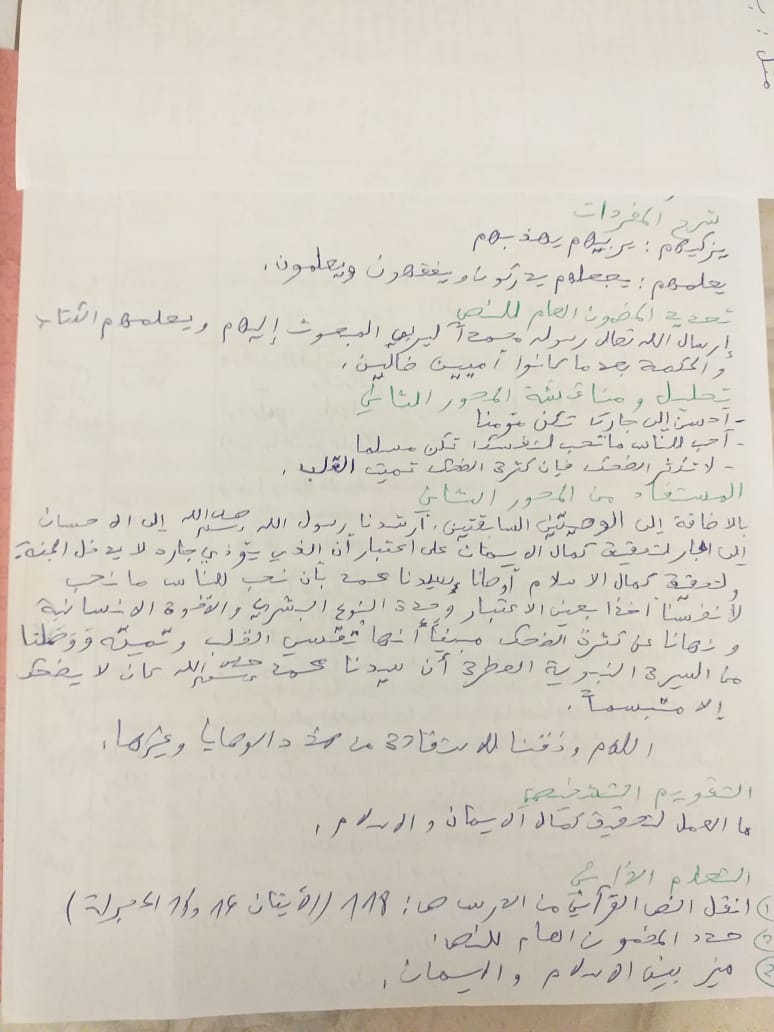 مثل :
شرح المفردات
يزكيهم : يربيهم يهذبهم
يعلمهم : يجعلهم يدركون ويفقهون ويعلمون.
تحديد المضمون العام للنص
إرسال الله تعال رسوله محمدا ليربي المبعوث إليهم ويعلمهم الكتاب
والحكمة بعد ما كانوا أميين ضالين.
تحليل ومناقشة المحور الثاني
- أحسن إلى جارك تكن مؤمنا
- أحب للناس ما تحب لنفسك تكن مسلما
- لا تكثر الضحك فإن كثرة الضحك تميت القلب.
المستفاد من المحور الثاني
بالاضافة إلى الوصيتين السابقتين، أرشدنا رسول الله صلى الله عليه وسلم إلى الاحسان
إلى الجار لتحقيق كمال الايمان على اعتبار أن الذي يؤذي جاره لا يدخل الجنة.
ولتحقيق كمال الاسلام أوصانا سيدنا محمد بأن نحب للناس ما نحب
لأنفسنا أخذا بعين الاعتبار وحدة النوع البشري والأخوة الانسانية
ونهانا عن كثرة الضحك مبيناً أنها تقسي القلب وتميته ووصلنا
من السيرة النبوية العطرة أن سيدنا محمد صلى الله عليه وسلم كان لا يضحك
إلا متبسماً.
اللهم وفقنا للاستفادة من هذه الوصايا وغيرها.
التقويم التشخيصي
ما العمل لتحقيق كمال الايمان والاسلام.
التعلم الذاتي
① انقل النص القرآني من الدرس ص: 118 (الأيتان 16 و17 الحجرات)
② حدد المضمون العام للنص.
③ ميز بين الاسلام والايمان.